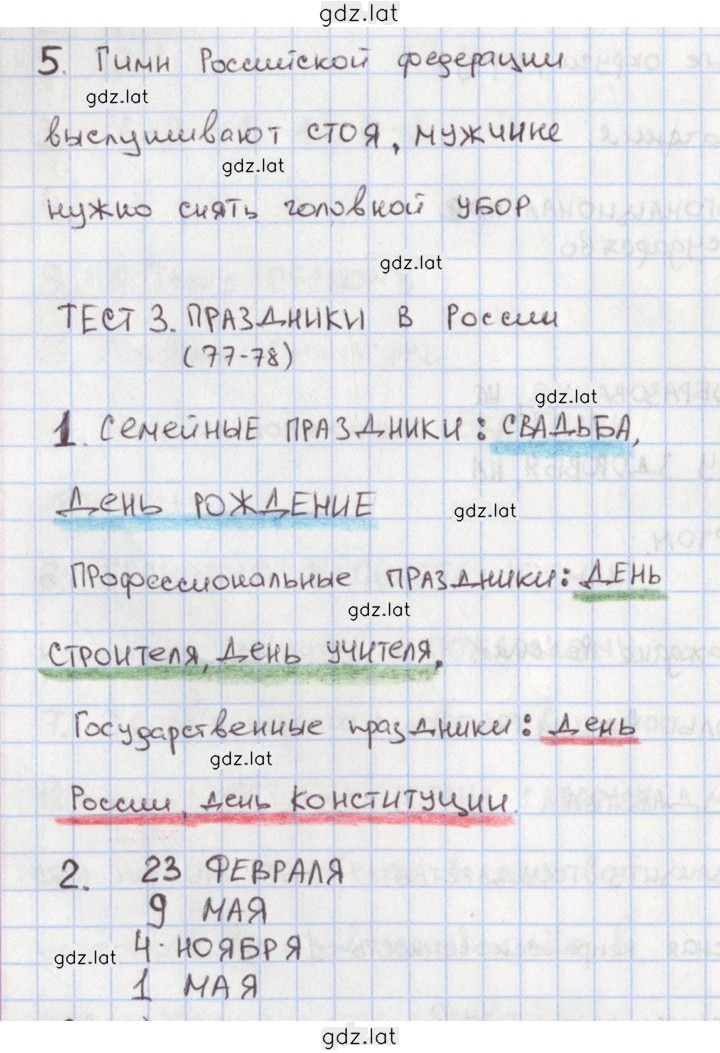 gdz.lat
5. Гимн Российской федерации
gdz.lat
выслушивают СТОЯ, мужчине
gdz.lat
нужно снять головной УБОР
gdz.lat
ТЕСТ 3. ПРАЗДНИКИ В России
(77-78)
gdz.lat
1. Семейные ПРАЗДНИКИ: СВАДЬБА,
День РОЖДЕНИЕ
gdz.lat
Профессиональные ПРАЗДНИКИ: ДЕНЬ
gdz.lat
СТРОИТЕЛЯ, День учителя,
Государственные праздники: День
gdz.lat
России, день КОНСТИТУЦИИ.
2. 23 ФЕВРАЛЯ
9 МАЯ
4 НОЯБРЯ
gdz.lat
1 МАЯ
gdz.lat